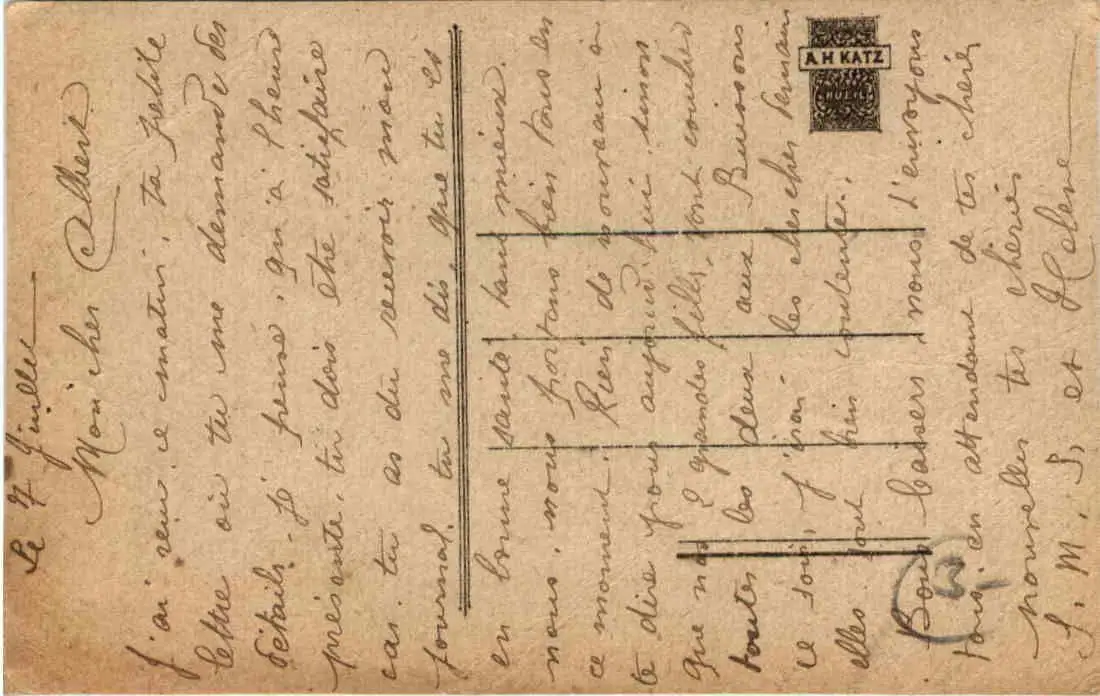 Le 7 Juillet
Mon cher Albert
J'ai reçu ce matin, ta petite
lettre où tu me demande des
détails. Je pense, qu'à l'heure
présente, tu dois être satisfaire
car tu as du recevoir mon
journal. tu me dis que tu es
en bonne santé tant mieux.
nous, nous portons bien tous en
ce moment. Rien de nouveau à
te dire pour aujourd'hui sinon
que nos 2 grandes filles, sont
toutes les deux aux Buissons
ce soir, j'irai les chercher demain
elles sont bien contentes.
Bons baisers nous t'envoyons
tous, en attendant de tes chéres
nouvelles tes chéries
S. M. S. et Hélène
A H KATZ
3-